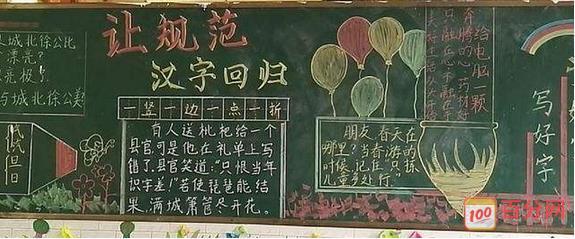 让规范
汉字回归
一竖一边一点一折
有人送枇杷给一个
县官可是他在礼单上写
错了县官笑道:“只恨当年
识字差!”若使琵琶能结
果,满城箫管尽开花。
城北徐公比
漂亮?
亮极!
与城北徐公美
朋友,春天在
哪里?当春游的
时候,记住“只拣
儿童多处行。”
给电脑一颗
奔腾的心
写好字
100 百分网